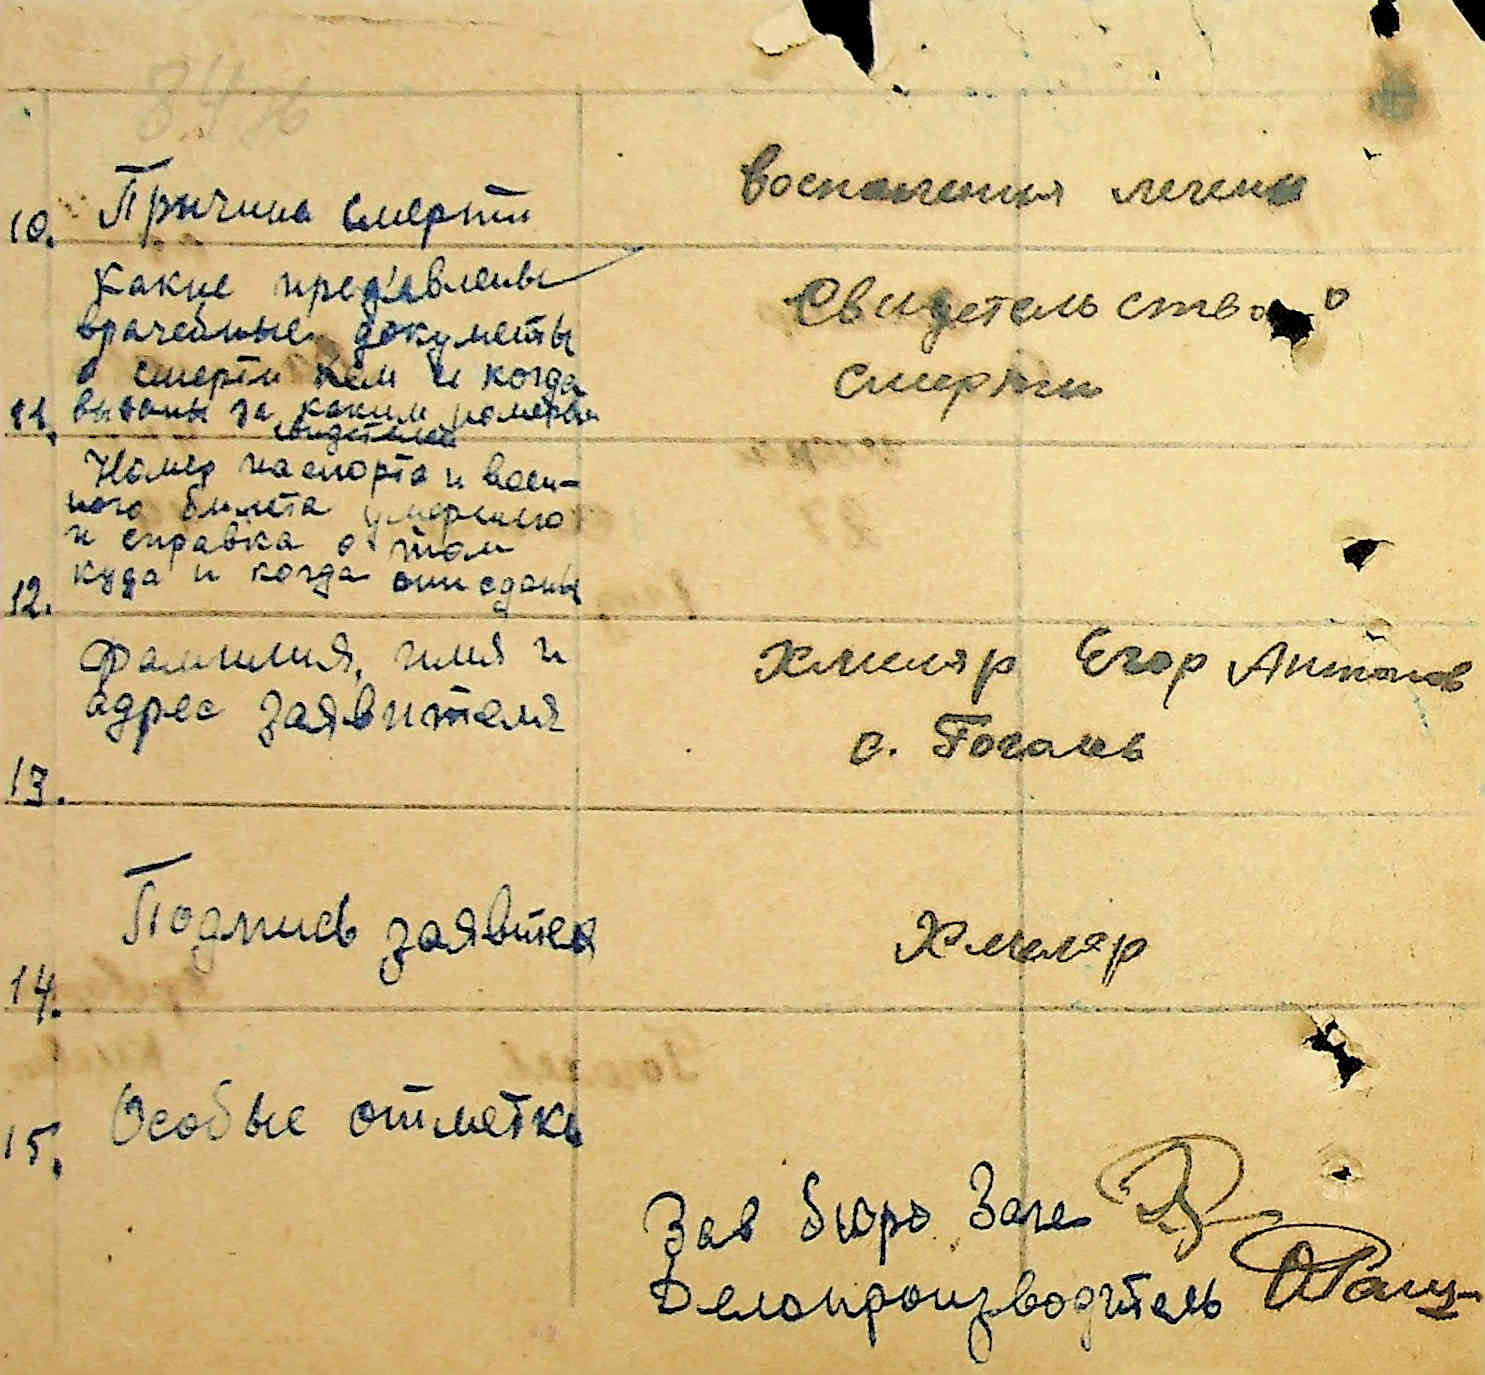 10. Причина смерти
воспаления легких
Какие пред'явлены
врачебные документы
о смерти кем и когда
11. выданы за каким номером
свидетелей
Свидетельство о
смерти
Номер паспорта и воен-
ного билета умершего
и справка о том
куда и когда они сданы
12.
Фамилия, имя и
адрес заявителя
13.
Хмиляр Егор Антонов
с. Гоголев
Подпись заявител
14.
Хмиляр
15. Особые отметки
Зав Бюро Загс
Делопроизводитель